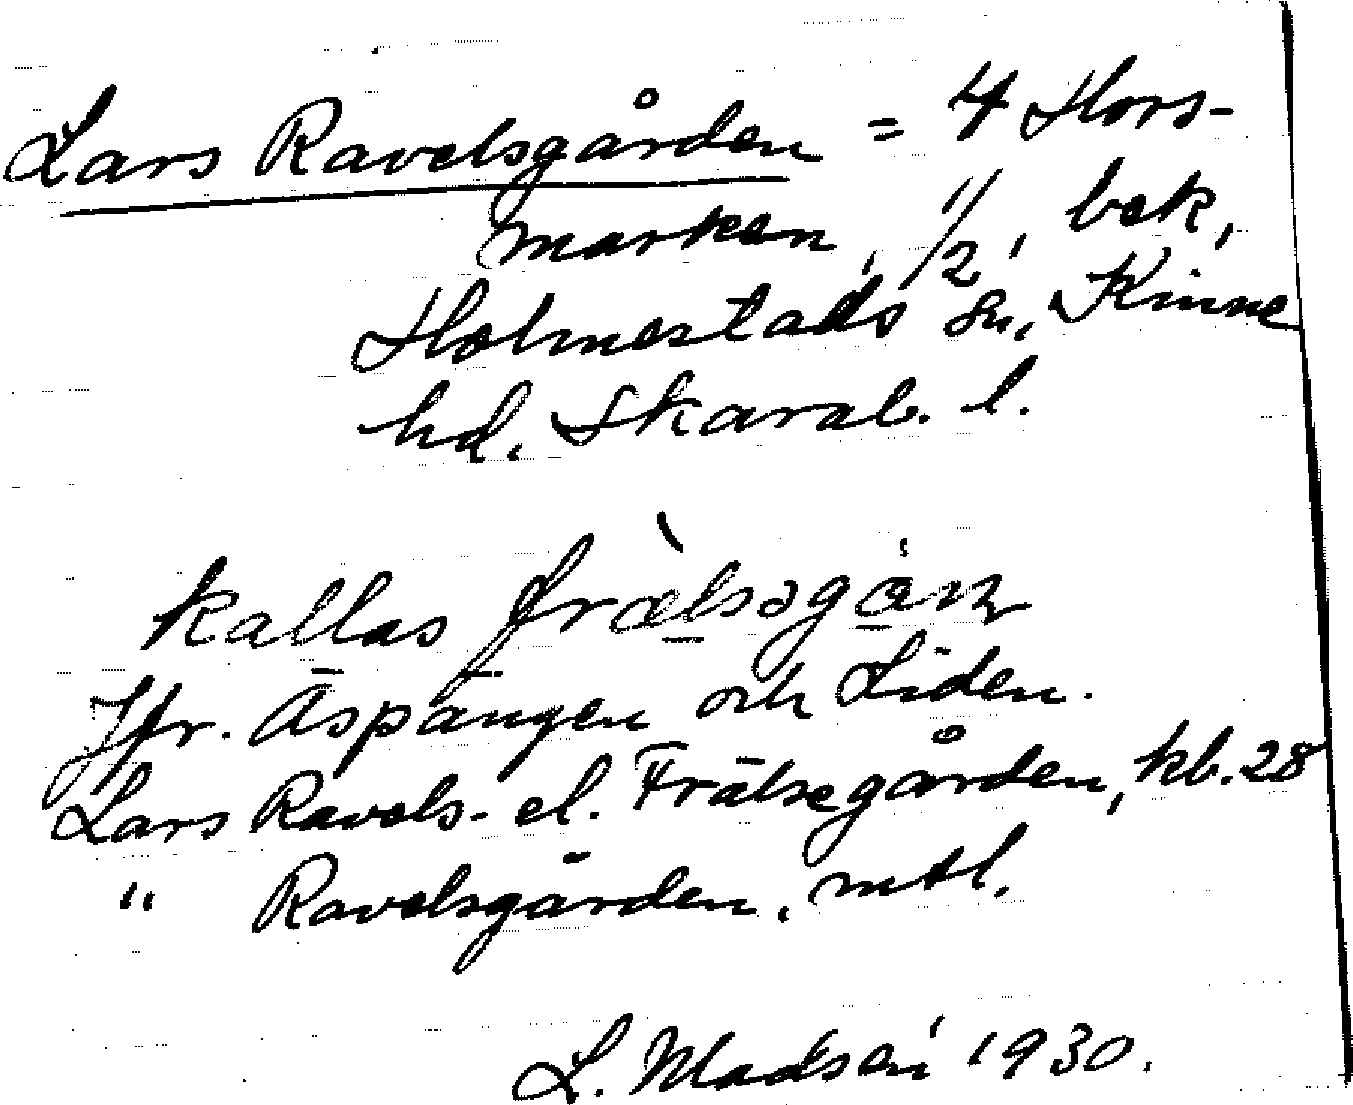 Lars Ravelsgården = 4 Hors-
marken, 1/2, bek,
Holmestads sn, Kinne
hd. Skarab. l.
kallas
Jfr. Äspängen och Liden.
Lars Ravels- el. Frälsegården, kb. 28
" Ravelsgården, mtl.
L. Madsén 1930.